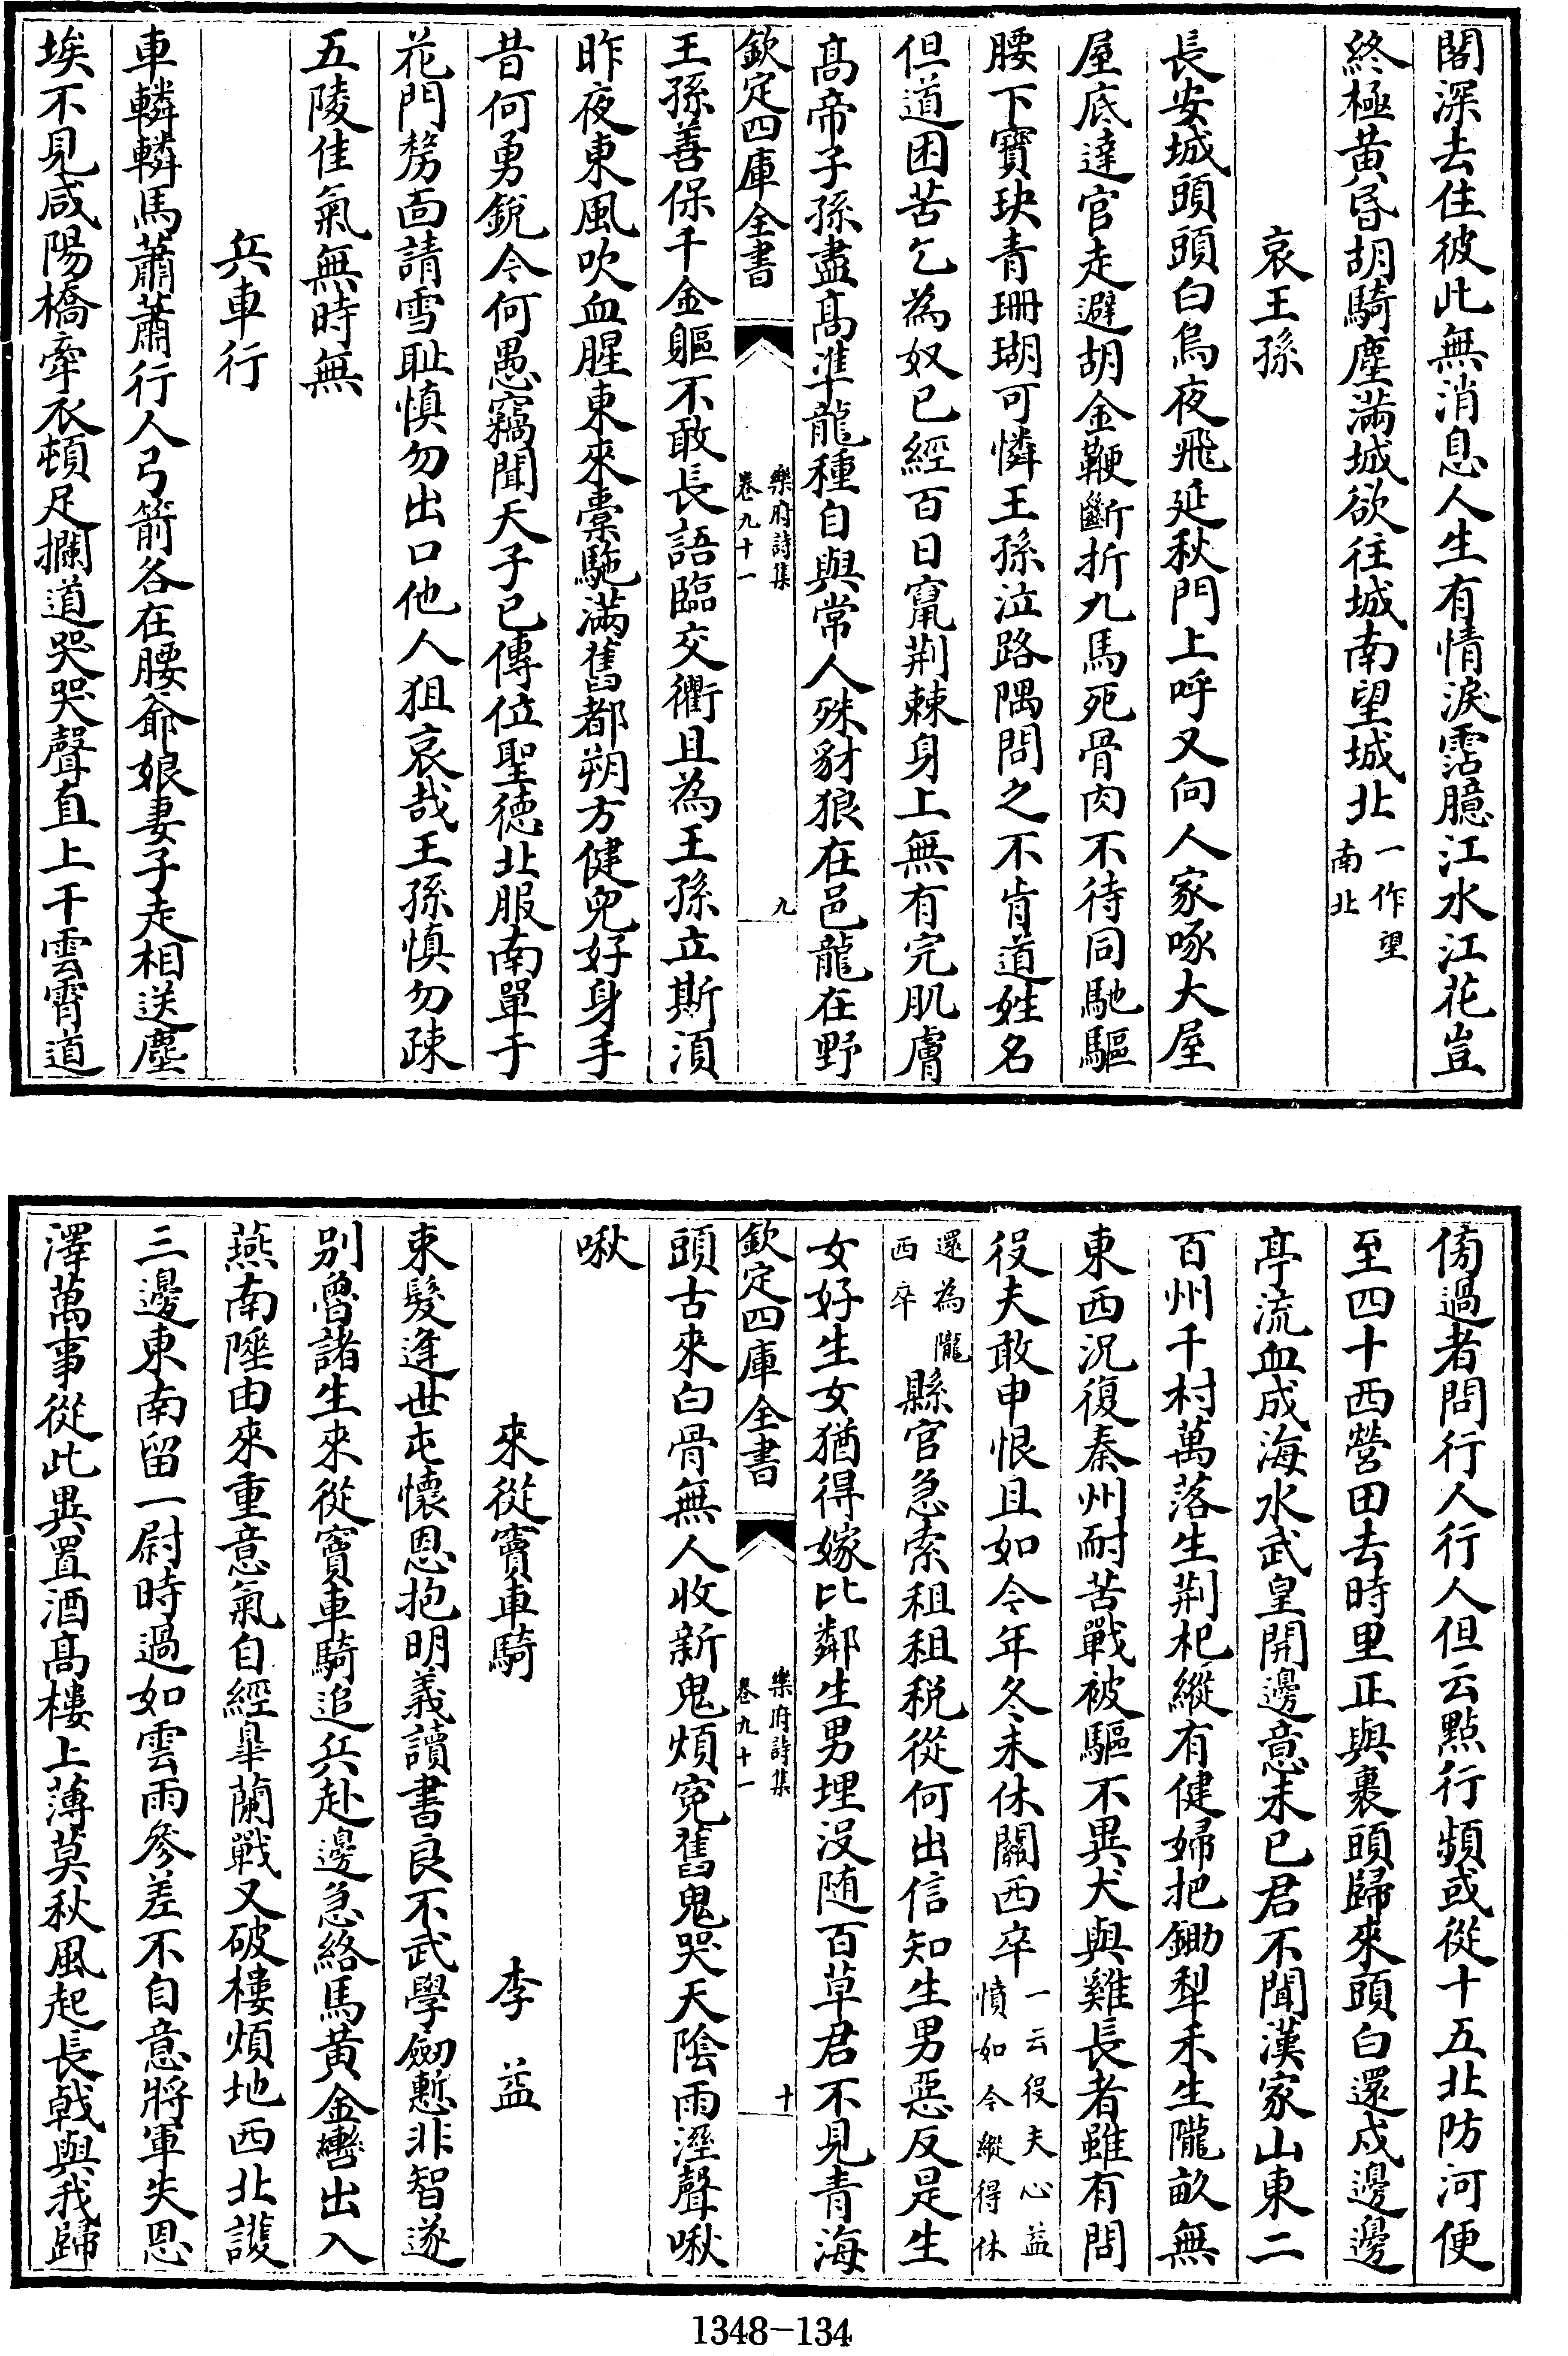 閣深去住彼此無消息人生有情淚霑臆江水江花豈
終極黄昏胡騎塵滿城欲往城南望城北一作望南北
哀王孫
長安城頭頭白烏夜飛延秋門上呼又向人家啄大屋
屋底達官走避胡金鞭斷折九馬死骨肉不待同馳驅
腰下寶玦青珊瑚可憐王孫泣路隅問之不肯道姓名
但道困苦乞為奴已經百日竄荆棘身上無有完肌膚
髙帝子孫盡髙準龍種自與常人殊豺狼在邑龍在野
欽定四庫全書
樂府詩集
卷九十一
九
王孫善保千金軀不敢長語臨交衢且為王孫立斯須
昨夜東風吹血腥東來橐駞滿舊都朔方健兒好身手
昔何勇銳今何愚竊聞天子已傳位聖徳北服南單于
花門剺面請雪耻慎勿出口他人狙哀哉王孫慎勿疎
五陵佳氣無時無
兵車行
車轔轔馬蕭蕭行人弓箭各在腰爺娘妻子走相送塵
埃不見咸陽橋牽衣頓足攔道哭哭聲直上干雲霄道
傍過者問行人行人但云點行頻或從十五北防河便
至四十西營田去時里正與裹頭歸來頭白還戍邊邊
亭流血成海水武皇開邊意未已君不聞漢家山東二
百州千村萬落生荆杞縱有健婦把鋤犂禾生隴畝無
東西況復秦州耐苦戰被驅不異犬與雞長者雖有問
役夫敢申恨且如今年冬未休關西卒一云役夫心益憤如今縱得休
還為隴西卒縣官急索租租税從何出信知生男惡反是生
女好生女猶得嫁比鄰生男埋没随百草君不見青海
欽定四庫全書
樂府詩集
卷九十一
十
頭古來白骨無人收新鬼煩寃舊鬼哭天陰雨溼聲啾
啾
來從竇車騎
李益
束髮逢世屯懷恩抱明義讀書良不武學劒慙非智遂
别魯諸生來從竇車騎追兵赴邊急絡馬黄金轡出入
燕南陲由來重意氣自經臯蘭戰又破樓煩地西北護
三邊東南留一尉時過如雲雨參差不自意將軍失恩
澤萬事從此異置酒髙樓上薄莫秋風起長戟與我歸
1348-134